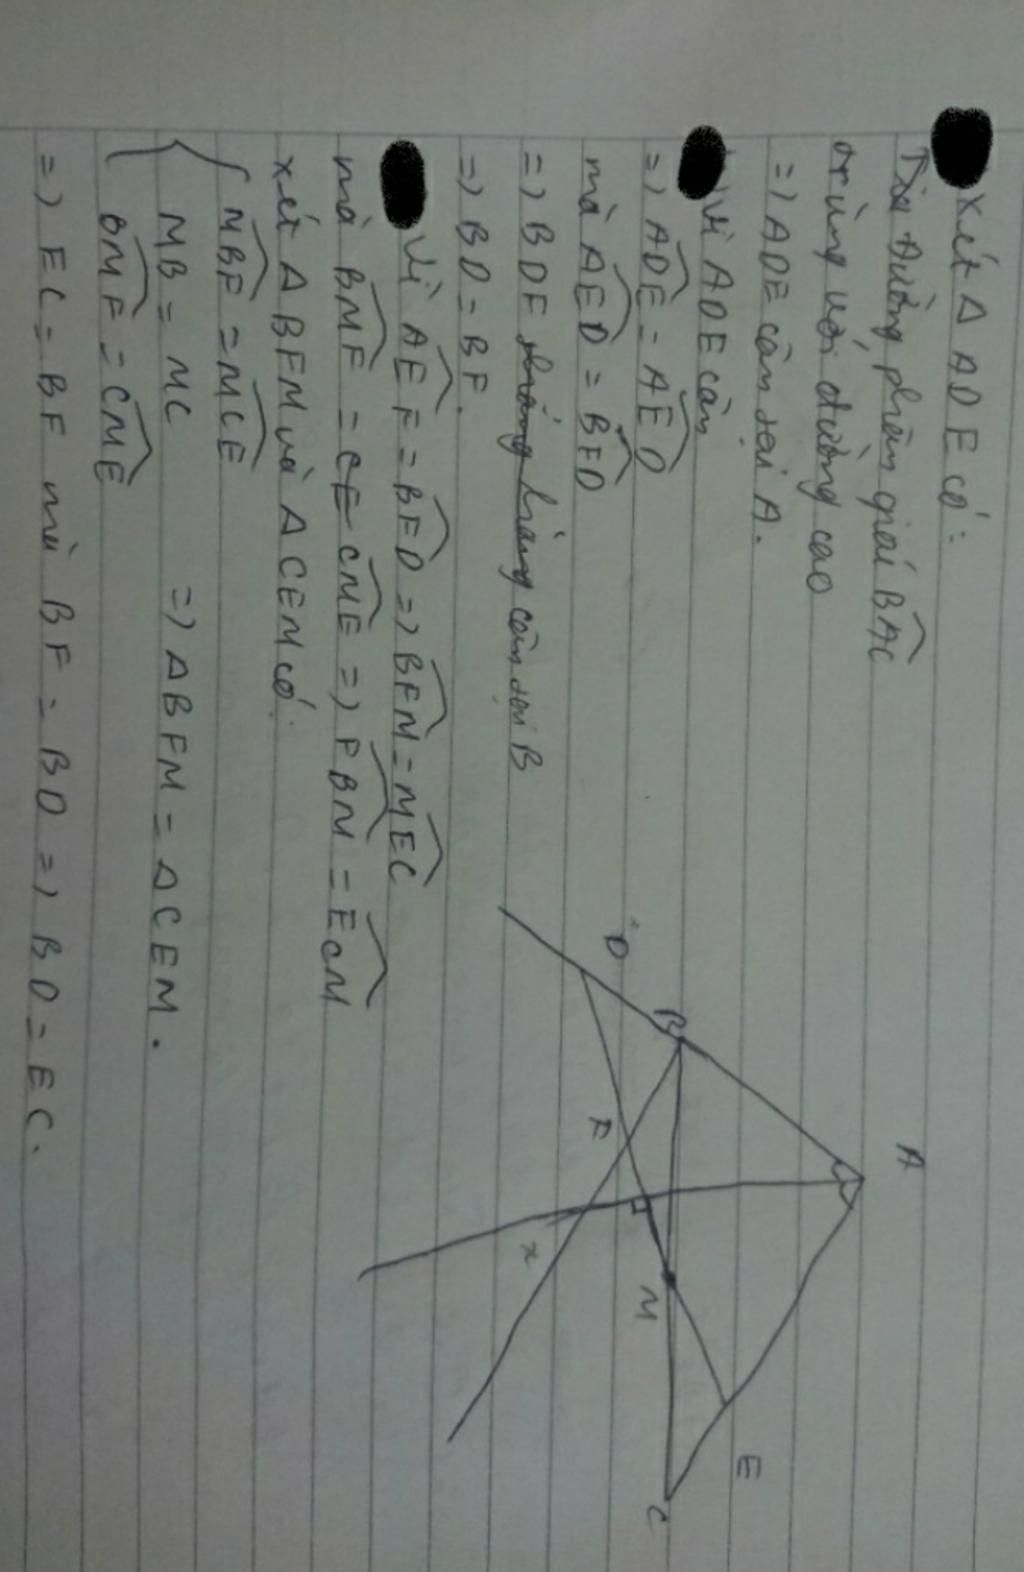 Xét Δ ADE có:
Tia đường phân giái BAC
trùng với đường cao
=) ADE cân tại A.
Vì ADE cân
=) ADE = AED
mà AED = BFD
=) BDF cân tại B
=) BD = BF.
Vì AEF = BFD =) BFM = MEC
mà BMF = CME =) FBM = ECM
xét Δ BFM và Δ CEM có:
MBF = MCE
MB = MC =) Δ BFM = Δ CEM.
BMF = CME
=) EC = BF mà BF = BD =) BD = EC.
A
D
B
F
x
M
E
C